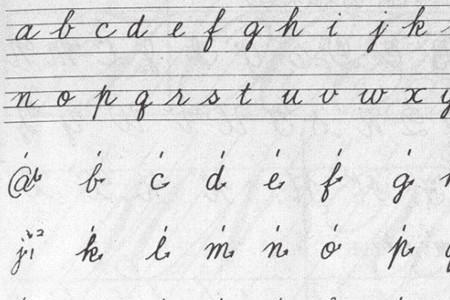 a b c d e f g h i j k
n o p q r s t u v w x y
a b c d e f g
j k l m n o p